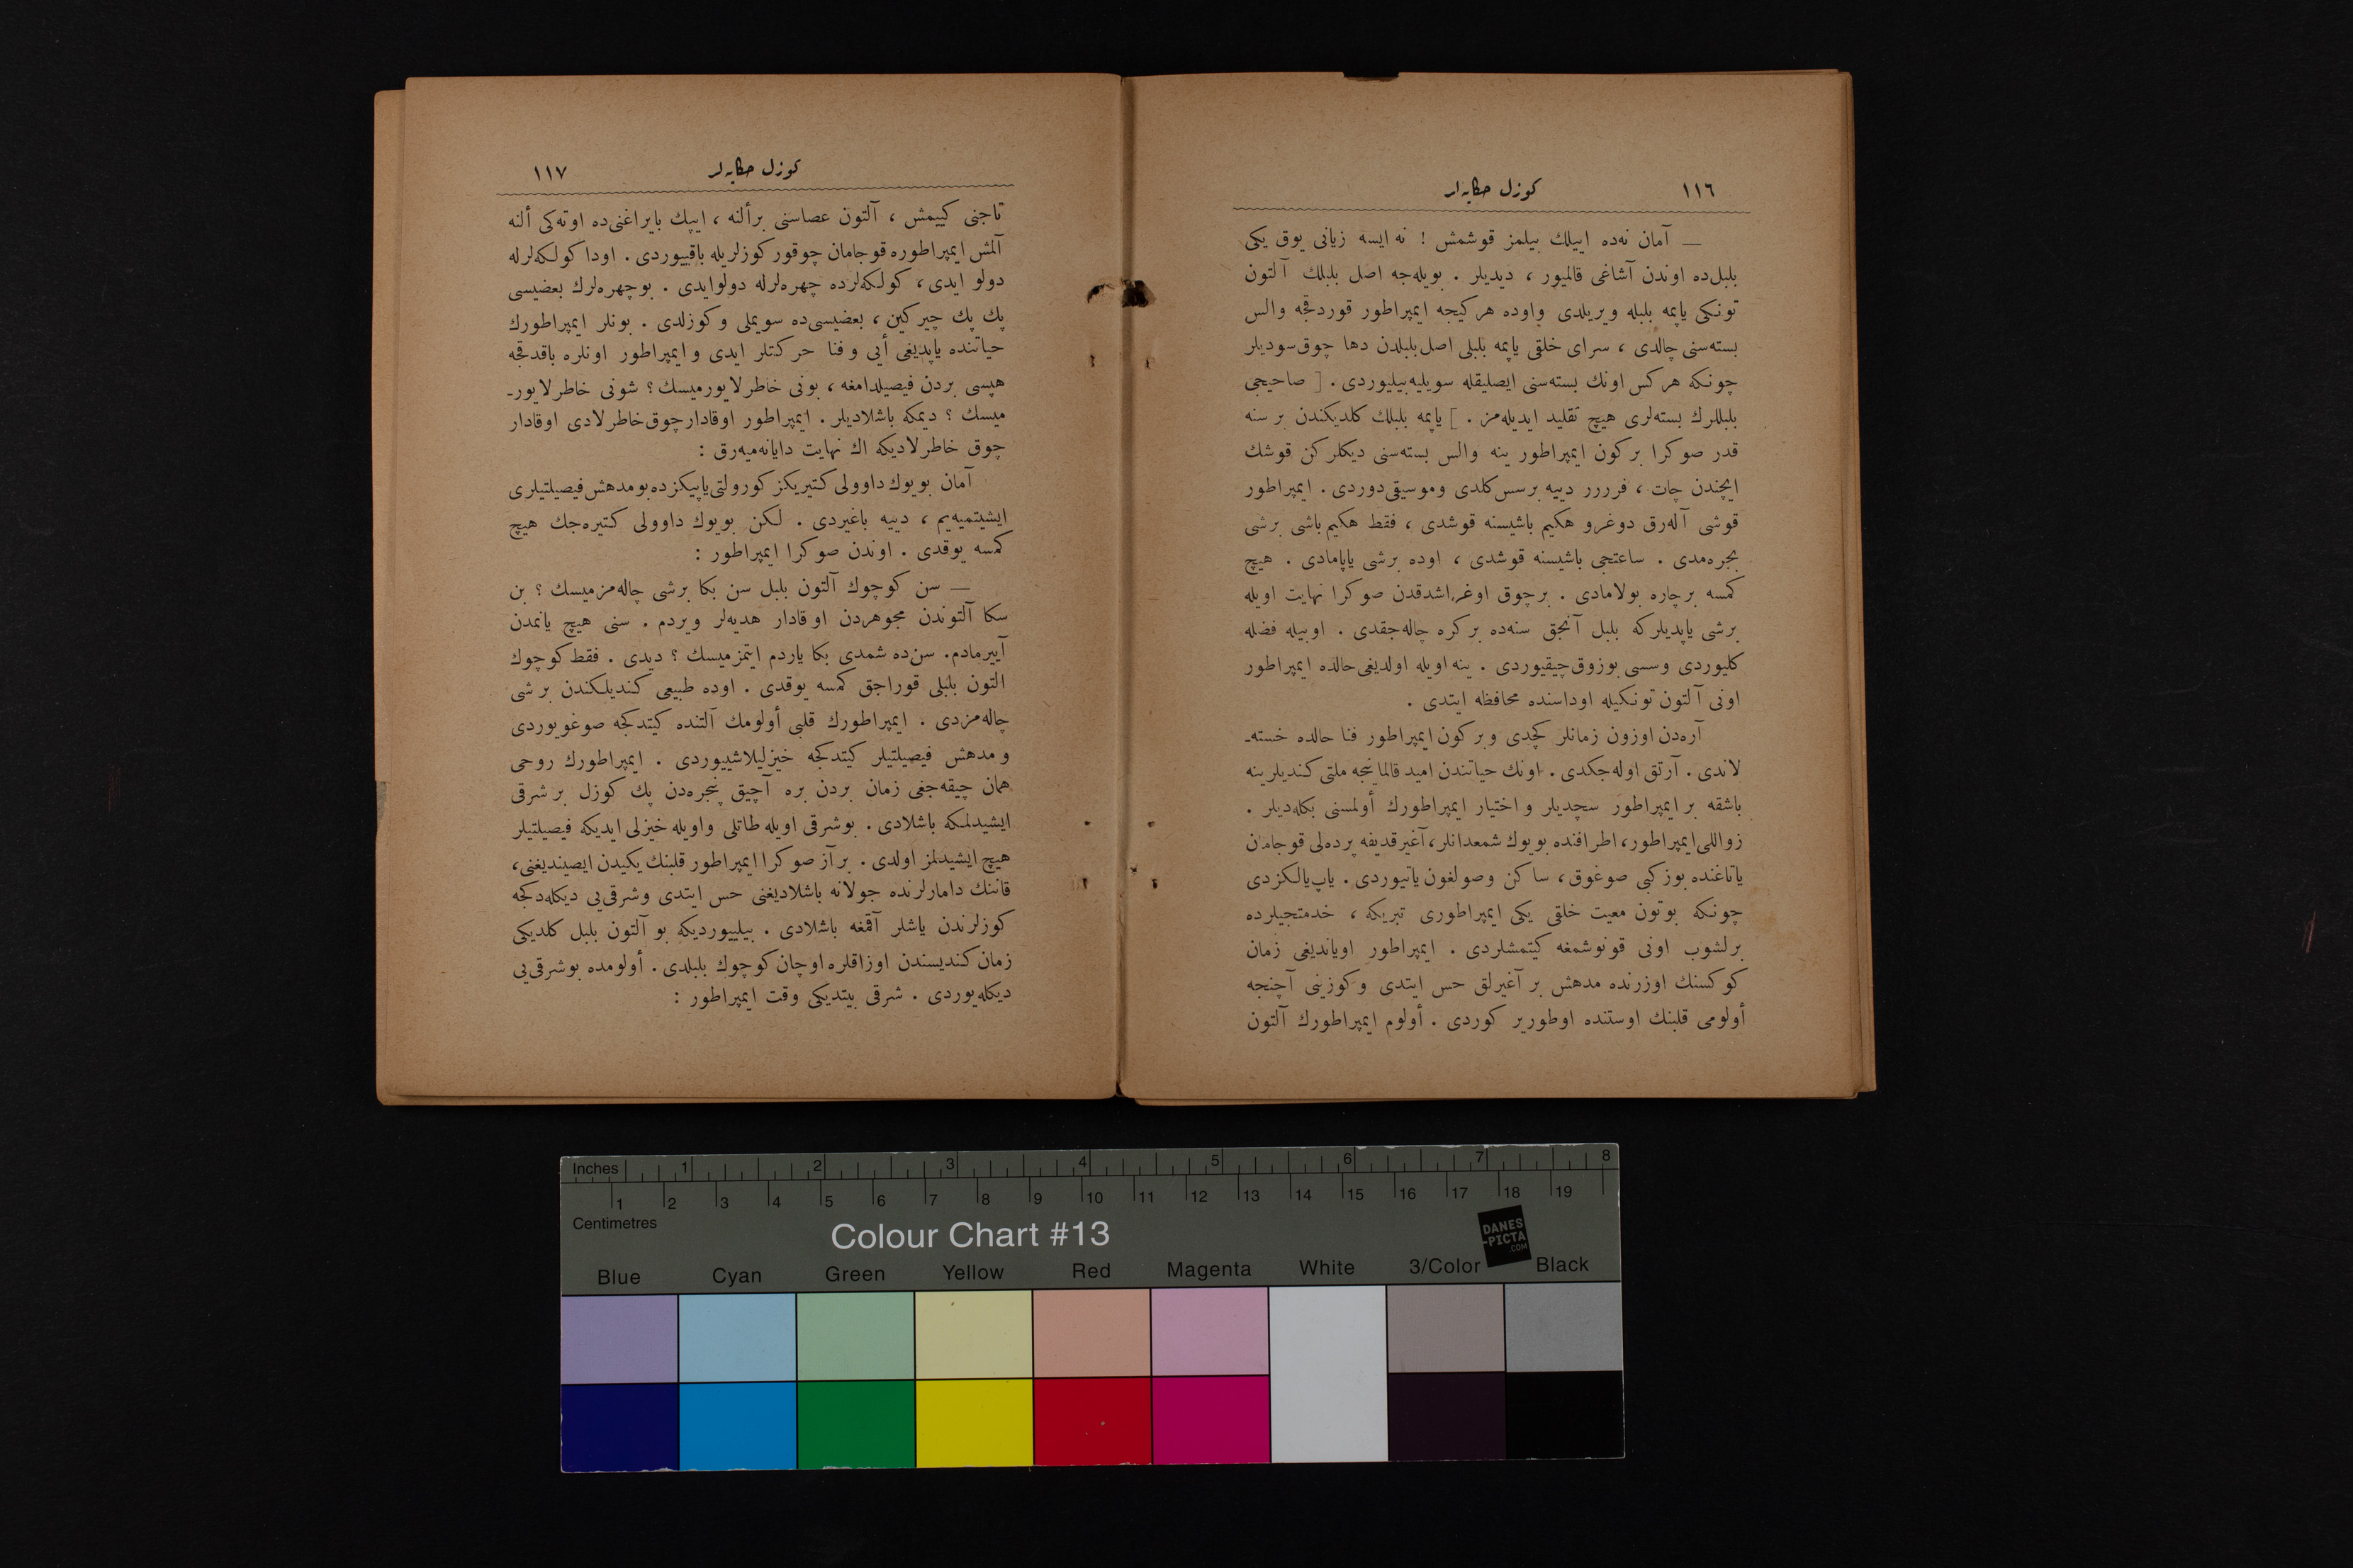 ١١٦
كوزل حكايه‌لر
— آمان نه‌ده اييلك بيلمز قوشمش ! نه ايسه زيانى يوق يكى
بلبل‌ده اوندن آشاغى قالميور ، ديديلر . بويله‌جه اصل بلبلك آلتون
تونكى ياپمه بلبله ويريلدى واوده هركيجه ايمپراطور قوردقجه والس
بسته‌سنى چالدى ، سراى خلقى ياپمه بلبلى اصل بلبلدن دها چوق سوديلر
چونكه هركس اونك بسته‌سنى ايصليقله سويليه‌بيليوردى . [ صاحيجى
بلبللرك بسته‌لرى هيچ تقليد ايديله‌مز . ] ياپمه بلبلك كلديكندن بر سنه
قدر صوكرا بركون ايمپراطور ينه والس بسته‌سنى ديكلركن قوشك
ايچندن چات ، فرررر دييه برسس كلدى وموسيقى دوردى . ايمپراطور
قوشى آله‌رق دوغرو هكيم باشيسنه قوشدى ، فقط هكيم باشى برشى
بجره‌مدى . ساعتجى باشيسنه قوشدى ، اوده برشى ياپامادى . هيچ
كمسه برچاره بولامادى . برچوق اوغراشدقدن صوكرا نهايت اويله
برشى ياپديلركه بلبل آنجق سنه‌ده بركره چاله‌جقدى . اوبيله فضله
كليوردى وسسى بوزوق چيقيوردى . ينه اويله اولديغى حالده ايمپراطور
اونى آلتون تونكيله اوداسنده محافظه ايتدى .
آره‌دن اوزون زمانلر كچدى وبركون ايمپراطور فنا حالده خسته‌ـ
لاندى . آرتق اوله‌جكدى . اونك حياتندن اميد قالماينجه ملتى كنديلرينه
باشقه بر ايمپراطور سچديلر و اختيار ايمپراطورك أولمسنى بكله‌ديلر .
زواللى ايمپراطور ، اطرافنده بويوك شمعدانلر ، آغير قديفه پرده‌لى قوجامان
ياتاغنده بوزكبى صوغوق ، ساكن وصولغون ياتيوردى . ياپ‌يالكزدى
چونكه بوتون معيت خلقى يكى ايمپراطورى تبريكه ، خدمتجيلرده
برلشوب اونى قونوشمغه كيتمشلردى . ايمپراطور اوياندیغى زمان
كوكسنك اوزرنده مدهش بر آغيرلق حس ايتدى وكوزينى آچنجه
أولومى قلبنك اوستنده اوطورير كوردى . أولوم ايمپراطورك آلتون
كوزل حكايه‌لر
١١٧
تاجنى كييمش ، آلتون عصاسنى برألنه ، ايپك بايراغنى‌ده اوته‌كى ألنه
آلمش ايمپراطوره قوجامان چوقور كوزلريله باقييوردى . اودا كولكه‌لرله
دولو ايدى ، كولكه‌لرده چهره‌لرله دولوايدى . بوچهره‌لرك بعضيسى
پك پك چيركين ، بعضيسى‌ده سويملى وكوزلدى . بونلر ايمپراطورك
حياتنده ياپديغى أيى و فنا حركتلر ايدى و ايمپراطور اونلره باقدقجه
هپسى بردن فيصيلدامغه ، بونى خاطرلايورميسك ؟ شونى خاطرلايور-
ميسك ؟ ديمكه باشلاديلر . ايمپراطور اوقادار چوق خاطرلادى اوقادار
چوق خاطرلاديكه اك نهايت دايانه‌ميه‌رق :
آمان بويوك داوولى كتيريكز كورولتى ياپيكزده بومدهش فيصيلتيلرى
ايشيتميه‌يم ، دييه باغيردى . لكن بويوك داوولى كتيره‌جك هيچ
كمسه يوقدى . اوندن صوكرا ايمپراطور :
— سن كوچوك آلتون بلبل سن بكا برشى چاله‌مزميسك ؟ بن
سكا آلتوندن مجوهردن اوقادار هديه‌لر ويردم . سنى هيچ يانمدن
آييرمادم. سن‌ده شمدى بكا ياردم ايتمزميسك ؟ ديدى . فقط كوچوك
التون بلبلى قوراجق كمسه يوقدى . اوده طبيعى كنديلكندن برشى
چاله‌مزدى . ايمپراطورك قلبى أولومك آلتنده كيتدكجه صوغويوردى
و مدهش فيصيلتيلر كيتدكجه خيزليلاشييوردى . ايمپراطورك روحى
همان چيقه‌جغى زمان بردن بره آچيق پنجره‌دن پك كوزل برشرقى
ايشيدلمكه باشلادى . بوشرقى اويله طاتلى واويله خيزلى ايديكه فيصيلتيلر
هيچ ايشيدلمز اولدى . برآز صوكرا ايمپراطور قلبنك يكيدن ايصينديغنى ،
قاننك دامارلرنده جولانه باشلاديغنى حس ايتدى وشرقى‌يى ديكله‌دكجه
كوزلرندن ياشلر آقمغه باشلادى . بيلييورديكه بو آلتون بلبل كلديكى
زمان كنديسندن اوزاقلره اوچان كوچوك بلبلدى . أولومده بوشرقى‌يى
ديكله‌يوردى . شرقى بيتديكى وقت ايمپراطور :
Inches 1 2 3 4 5 6 7 8
1 2 3 4 5 6 7 8 9 10 11 12 13 14 15 16 17 18 19
Centimetres
Colour Chart #13
DANES
-PICTA
.COM
Blue Cyan Green Yellow Red Magenta White 3/Color Black